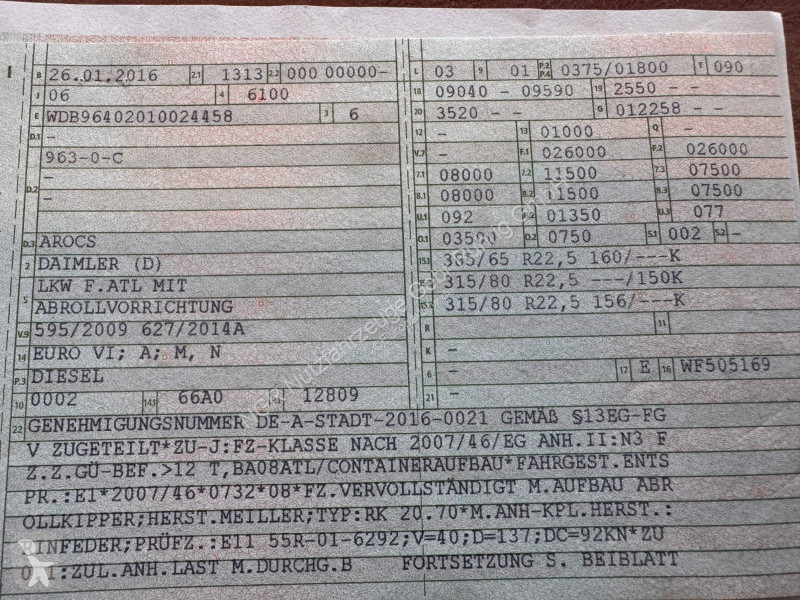 B 26.01.2016 2.1 1313 2.2 000 00000- L 03 9 01 P.2 P.4 0375/01800 T 090
J 06 4 6100 18 09040 - 09590 19 2550 - -
E WDB96402010024458 3 6 20 3520 - - G 012258 - -
D.1 - 12 - 13 01000 Q -
963-0-C V.7 - F.1 026000 F.2 026000
- 7.1 08000 7.2 11500 7.3 07500
D.2 - 8.1 08000 8.2 11500 8.3 07500
U.1 092 01350 U.3 077
D.3 AROCS O.1 03500 O.2 0750 S.1 002 S.2 -
2 DAIMLER (D) 15.1 385/65 R22,5 160/---K
5 LKW F.ATL MIT 315/80 R22,5 ---/150K
ABROLLVORRICHTUNG 315/80 R22,5 156/---K
V.9 595/2009 627/2014A R 11
14 EURO VI; A; M, N K -
P.3 DIESEL 6 - 17 E 16 WF505169
10 0002 14.1 66A0 12809 21 -
22 GENEHMIGUNGSNUMMER DE-A-STADT-2016-0021 GEMÄß §13EG-FG
V ZUGETEILT*ZU-J:FZ-KLASSE NACH 2007/46/EG ANH.II:N3 F
Z.Z.GÜ-BEF.>12 T,BA08ATL/CONTAINERAUFBAU*FAHRGEST.ENTS
PR.:E1*2007/46*0732*08*FZ.VERVOLLSTÄNDIGT M.AUFBAU ABR
OLLKIPPER;HERST.MEILLER;TYP:RK 20.70*M.ANH-KPL.HERST.:
RINFEDER;PRÜFZ.:E11 55R-01-6292;V=40;D=137;DC=92KN*ZU
:ZUL.ANH.LAST M.DURCHG.B FORTSETZUNG S. BEIBLATT